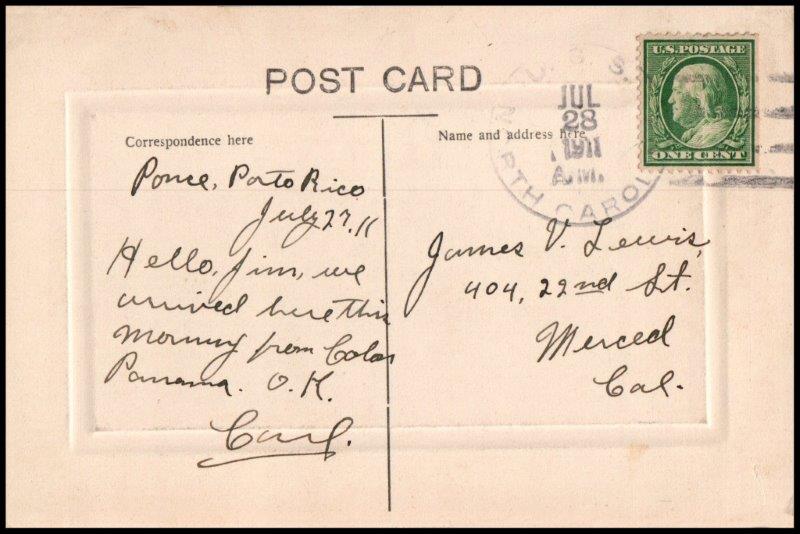 POST CARD
U.S.S. NORTH CAROL
JUL
28
1911
A.M.
U.S. POSTAGE
ONE CENT
Correspondence here
Ponce, Porto Rico
July 27, 11
Hello, Jim, we
arrived here this
morning from Colon
Panama. O.K.
Carl.
Name and address here
James V. Lewis,
404, 22nd St.
Merced
Cal.